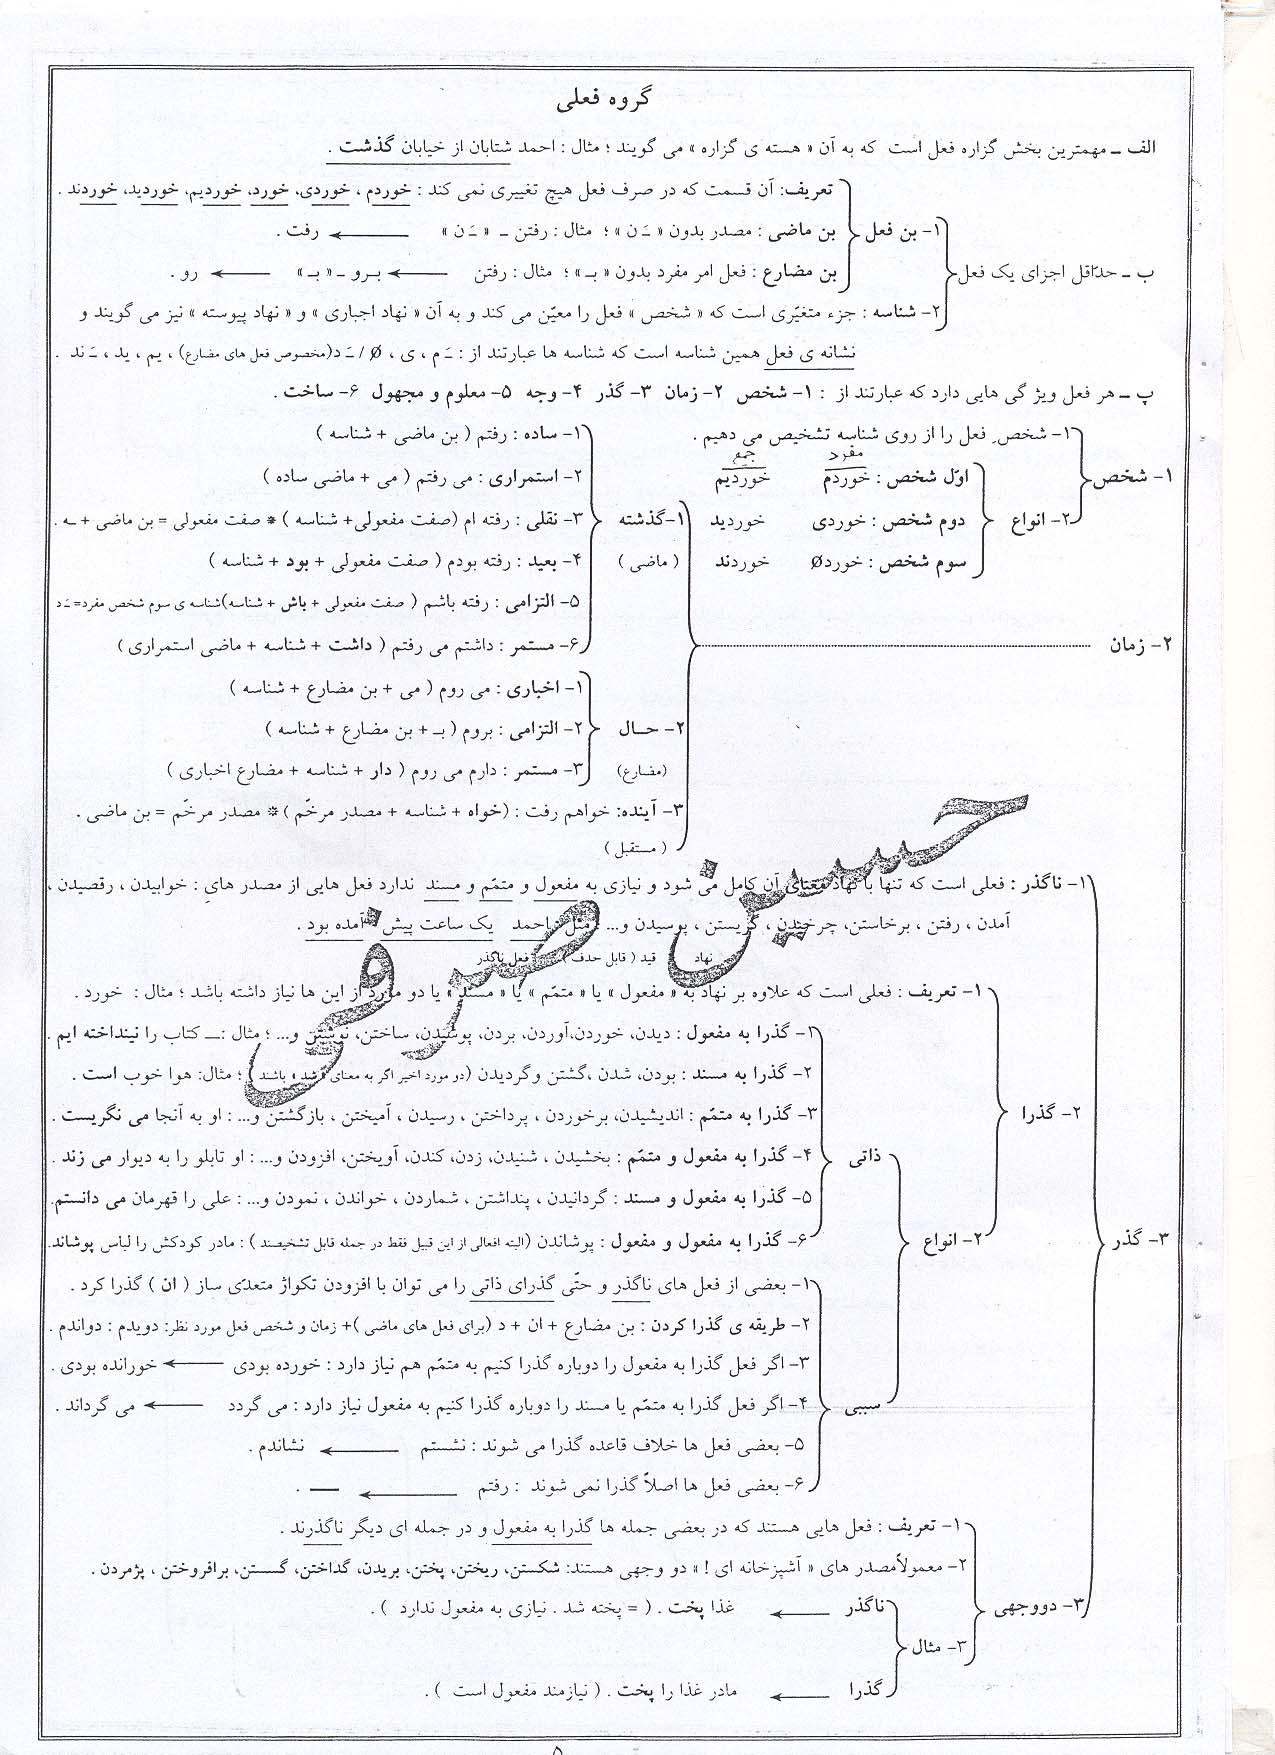 گروه فعلی
الف ـ مهمترین بخش گزاره فعل است که به آن « هسته ی گزاره » می گویند ؛ مثال : احمد شتابان از خیابان گذشت .
ب ـ حدّاقل اجزای یک فعل
۱- بن فعل
تعریف: آن قسمت که در صرف فعل هیچ تغییری نمی کند : خوردم ، خوردی، خورد، خوردیم، خوردید، خوردند .
بن ماضی : مصدر بدون « ـَ ن » ؛ مثال : رفتن ـ « ـَ ن » ← رفت .
بن مضارع : فعل امر مفرد بدون « بـ » ؛ مثال : رفتن ← بـرو ـ « بـ » ← رو .
۲- شناسه : جزء متغیّری است که « شخص » فعل را معیّن می کند و به آن « نهاد اجباری » و « نهاد پیوسته » نیز می گویند و
نشانه ی فعل همین شناسه است که شناسه ها عبارتند از : ـَ م ، ی ، Ø / ـَ د(مخصوص فعل های مضارع) ، یم ، ید ، ـَ ند .
پ ـ هر فعل ویژ گی هایی دارد که عبارتند از : ۱- شخص ۲- زمان ۳- گذر ۴- وجه ۵- معلوم و مجهول ۶- ساخت .
۱- شخص
۱- شخصِ فعل را از روی شناسه تشخیص می دهیم .
۲- انواع
مفرد جمع
اوّل شخص : خوردم خوردیم
دوم شخص : خوردی خوردید
سوم شخص : خوردØ خوردند
۲- زمان
۱-گذشته
( ماضی )
۱- ساده : رفتم ( بن ماضی + شناسه )
۲- استمراری : می رفتم ( می + ماضی ساده )
۳- نقلی : رفته ام (صفت مفعولی+ شناسه ) * صفت مفعولی = بن ماضی + ـه .
۴- بعید : رفته بودم ( صفت مفعولی + بود + شناسه )
۵- التزامی : رفته باشم ( صفت مفعولی + باش + شناسه)شناسه ی سوم شخص مفرد= ـَ د
۶- مستمر : داشتم می رفتم ( داشت + شناسه + ماضی استمراری )
۲- حـال
(مضارع)
۱- اخباری : می روم ( می + بن مضارع + شناسه )
۲- التزامی : بروم ( بـ + بن مضارع + شناسه )
۳- مستمر : دارم می روم ( دار + شناسه + مضارع اخباری )
۳- آینده: خواهم رفت : (خواه + شناسه + مصدر مرخّم )* مصدر مرخّم = بن ماضی .
( مستقبل )
حسین صرفی
۳- گذر
۱- ناگذر : فعلی است که تنها با نهاد معنای آن کامل می شود و نیازی به مفعول و متمّم و مسند ندارد فعل هایی از مصدر های : خوابیدن ، رقصیدن ،
آمدن ، رفتن ، برخاستن، چرخیدن ، گریستن ، پوسیدن و... مثل : احمد یک ساعت پیش آمده بود .
نهاد قید ( قابل حذف ) فعل ناگذر
۲- گذرا
۱- تعریف : فعلی است که علاوه بر نهاد به « مفعول » یا « متمّم » یا « مسند » یا دو مورد از این ها نیاز داشته باشد ؛ مثال : خورد .
۲- انواع
ذاتی
۱- گذرا به مفعول : دیدن، خوردن،آوردن، بردن، پوشیدن، ساختن، نوشتن و... ؛ مثال :ـــ کتاب را نینداخته ایم .
۲- گذرا به مسند : بودن، شدن ،گشتن وگردیدن (دو مورد اخیر اگر به معنای « شد » باشند ) ؛ مثال: هوا خوب است .
۳- گذرا به متمّم : اندیشیدن، برخوردن ، پرداختن ، رسیدن ، آمیختن ، بازگشتن و... : او به آنجا می نگریست .
۴- گذرا به مفعول و متمّم : بخشیدن ، شنیدن، زدن، کندن، آویختن، افزودن و... : او تابلو را به دیوار می زند .
۵- گذرا به مفعول و مسند : گردانیدن ، پنداشتن ، شماردن ، خواندن ، نمودن و... : علی را قهرمان می دانستم.
۶- گذرا به مفعول و مفعول : پوشاندن (البته افعالی از این قبیل فقط در جمله قابل تشخیصند ) : مادر کودکش را لباس پوشاند.
سببی
۱- بعضی از فعل های ناگذر و حتّی گذرای ذاتی را می توان با افزودن تکواژ متعدّی ساز ( ان ) گذرا کرد .
۲- طریقه ی گذرا کردن : بن مضارع + ان + د (برای فعل های ماضی )+ زمان و شخص فعل مورد نظر: دویدم : دواندم .
۳- اگر فعل گذرا به مفعول را دوباره گذرا کنیم به متمّم هم نیاز دارد : خورده بودی ← خورانده بودی .
۴- اگر فعل گذرا به متمّم یا مسند را دوباره گذرا کنیم به مفعول نیاز دارد : می گردد ← می گرداند .
۵- بعضی فعل ها خلاف قاعده گذرا می شوند : نشستم ← نشاندم .
۶- بعضی فعل ها اصلاً گذرا نمی شوند : رفتم ← ـــ .
۳- دووجهی
۱- تعریف : فعل هایی هستند که در بعضی جمله ها گذرا به مفعول و در جمله ای دیگر ناگذرند .
۲- معمولاًمصدر های « آشپزخانه ای ! » دو وجهی هستند: شکستن، ریختن، پختن، بریدن، گداختن، گسستن، برافروختن ، پژمردن .
۳- مثال
ناگذر ← غذا پخت . ( = پخته شد . نیازی به مفعول ندارد ) .
گذرا ← مادر غذا را پخت . ( نیازمند مفعول است ) .
۵